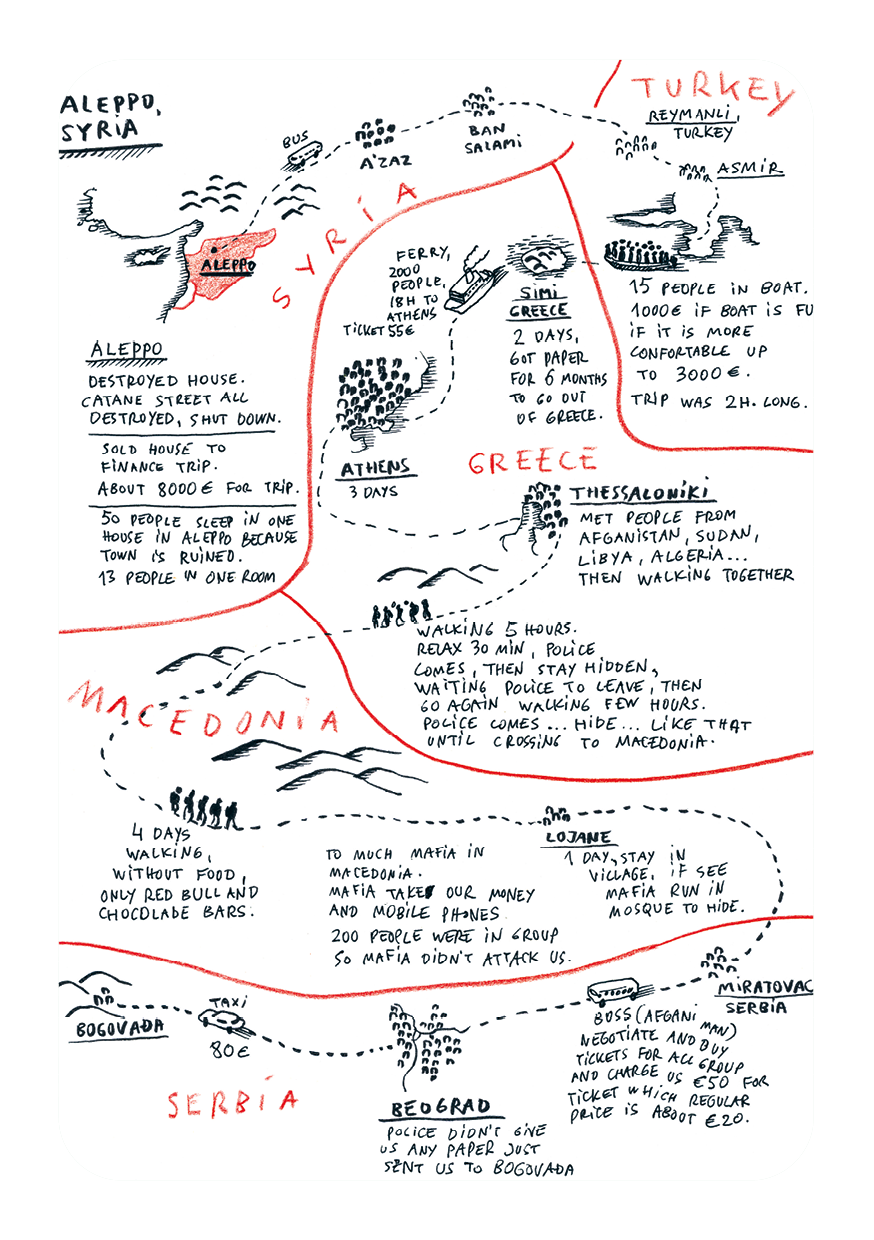 ALEPPO,
SYRIA
TURKEY
REYMANLI,
TURKEY
ASMIR
BUS
A'ZAZ
BAN
SALAMI
SYRIA
ALEPPO
FERRY,
2000
PEOPLE,
18H TO
ATHENS
TICKET 55€
SIMI
GREECE
2 DAYS,
GOT PAPER
FOR 6 MONTHS
TO GO OUT
OF GREECE.
15 PEOPLE IN BOAT.
1000€ IF BOAT IS FU
IF IT IS MORE
CONFORTABLE UP
TO 3000€.
TRIP WAS 2H. LONG.
ALEPPO
DESTROYED HOUSE.
CATANE STREET ALL
DESTROYED, SHUT DOWN.
SOLD HOUSE TO
FINANCE TRIP.
ABOUT 8000€ FOR TRIP.
50 PEOPLE SLEEP IN ONE
HOUSE IN ALEPPO BECAUSE
TOWN IS RUINED.
13 PEOPLE IN ONE ROOM
ATHENS
3 DAYS
GREECE
THESSALONIKI
MET PEOPLE FROM
AFGANISTAN, SUDAN,
LIBYA, ALGERIA...
THEN WALKING TOGETHER
WALKING 5 HOURS.
RELAX 30 MIN, POLICE
COMES, THEN STAY HIDDEN,
WAITING POLICE TO LEAVE, THEN
GO AGAIN WALKING FEW HOURS.
POLICE COMES... HIDE... LIKE THAT
UNTIL CROSSING TO MACEDONIA.
MACEDONIA
4 DAYS
WALKING,
WITHOUT FOOD,
ONLY RED BULL AND
CHOCOLADE BARS.
TO MUCH MAFIA IN
MACEDONIA.
MAFIA TAKES OUR MONEY
AND MOBILE PHONES
200 PEOPLE WERE IN GROUP
SO MAFIA DIDN'T ATTACK US.
LOJANE
1 DAY, STAY IN
VILLAGE, IF SEE
MAFIA RUN IN
MOSQUE TO HIDE.
MIRATOVAC
SERBIA
BOSS (AFGANI MAN)
NEGOTIATE AND BUY
TICKETS FOR ALL GROUP
AND CHARGE US €50 FOR
TICKET WHICH REGULAR
PRICE IS ABOUT €20.
BOGOVAĐA
TAXI
80€
SERBIA
BEOGRAD
POLICE DIDN'T GIVE
US ANY PAPER JUST
SENT US TO BOGOVAĐA